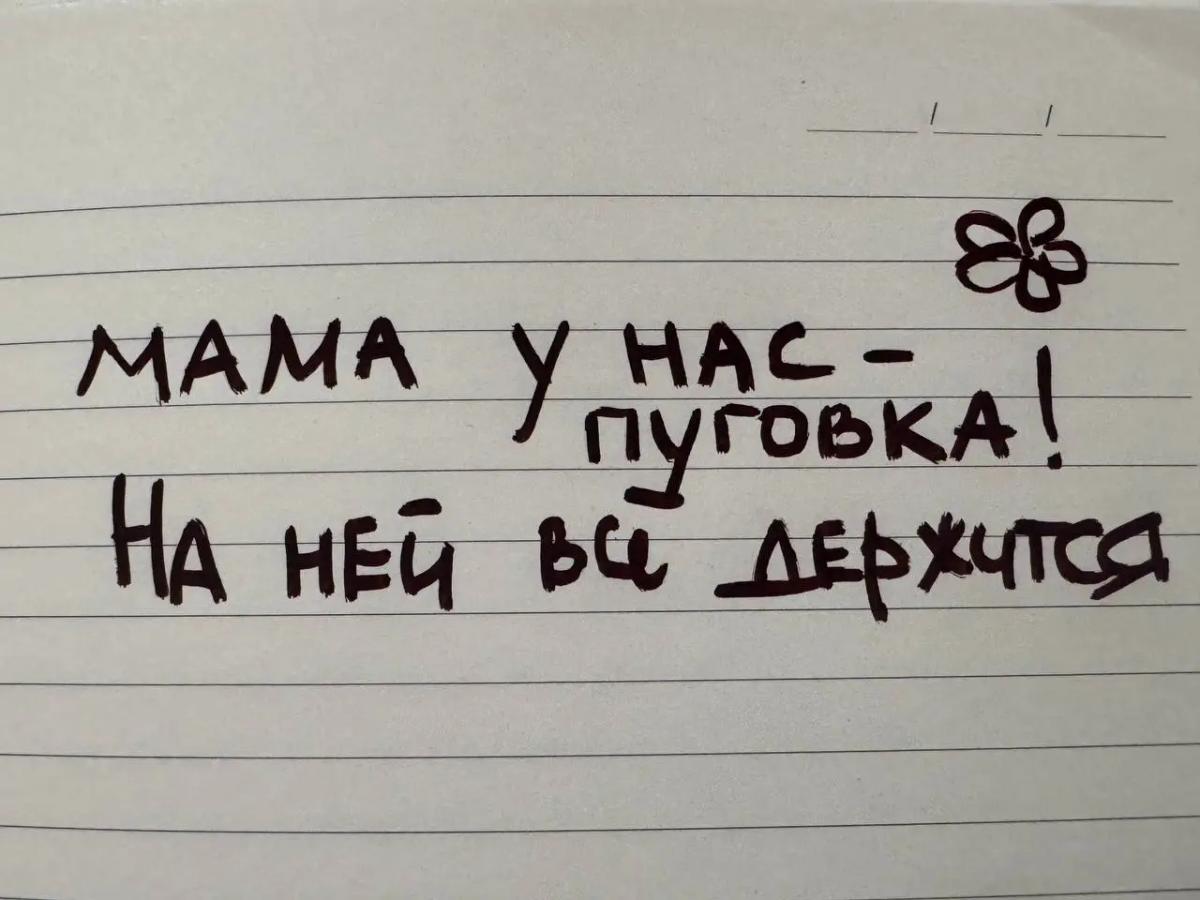 МАМА У НАС –
ПУГОВКА!
НА НЕЙ ВСЕ ДЕРЖИТСЯ